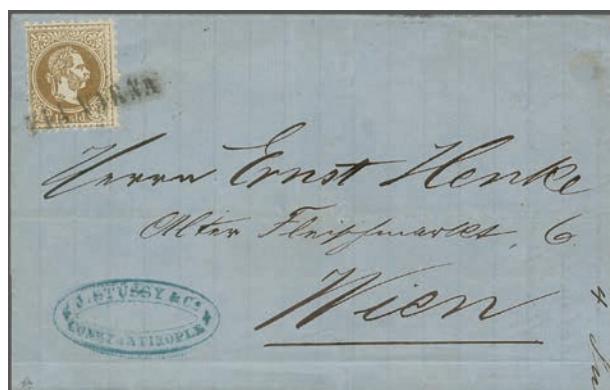 VIA VARNA
Herrn Ernst Henke
Alter Fleischmarkt, 6
Wien
J. STÜSSY & Co
CONSTANTINOPLE